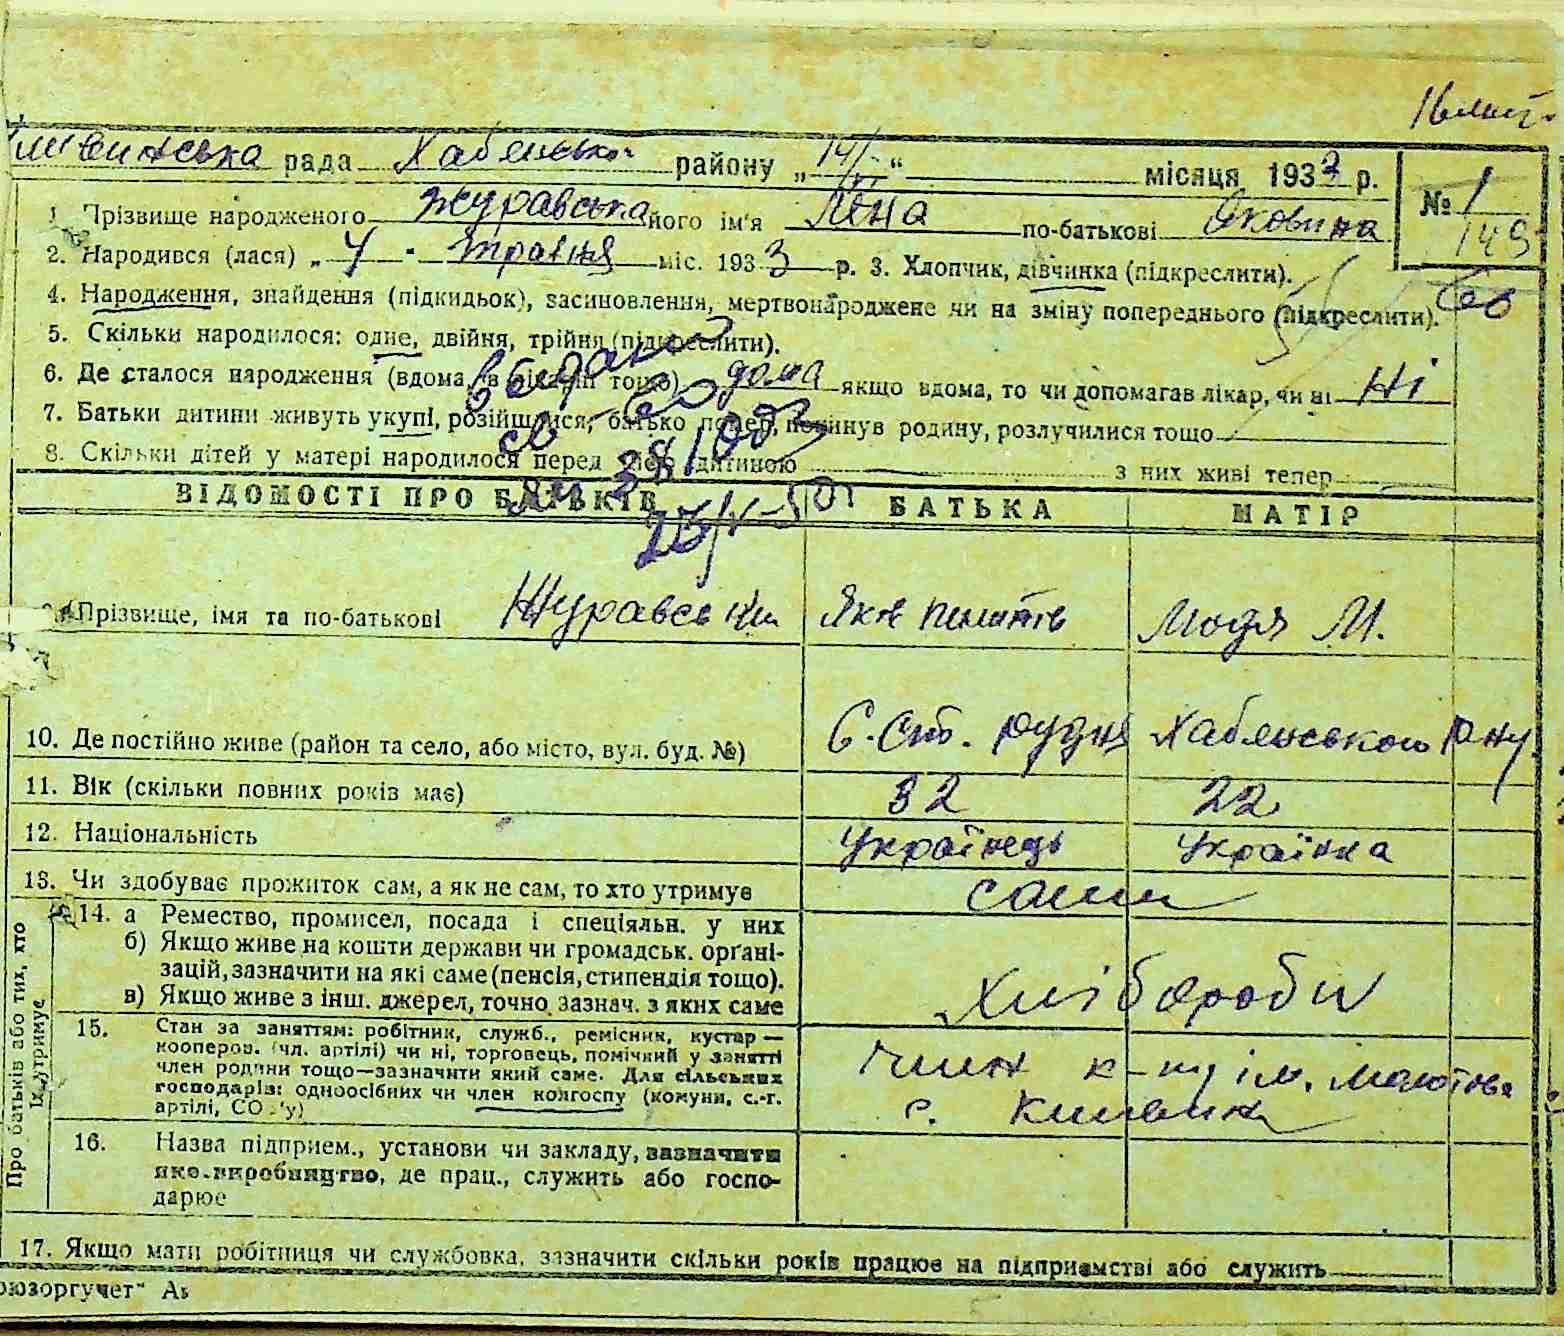 рада Хабенського району „14/VI“ місяця 1933 р.
№ 1
149
1. Прізвище народженого Журавська його ім'я Лєна по-батькові Яковина
2. Народився (лася) „4" травня міс. 1933 р. 3. Хлопчик, дівчинка (підкреслити).
4. Народження, знайдення (підкидьок), засиновлення, мертвонароджене чи на зміну попереднього (підкреслити).
5. Скільки народилося: одне, двійня, трійня (підкреслити).
6. Де сталося народження (вдома, в лікарні тощо) дома якщо вдома, то чи допомагав лікар, чи ні Ні
7. Батьки дитини живуть укупі, розійшлися, батько помер, покинув родину, розлучилися тощо
8. Скільки дітей у матері народилося перед цією дитиною з них живі тепер
ВІДОМОСТІ ПРО БАТЬКІВ БАТЬКА МАТІР
9. Прізвище, імя та по-батькові Журавськи Яків Модя М.
10. Де постійно живе (район та село, або місто, вул. буд. №) С. Ст. Рудня Хабенського р-ну
11. Вік (скільки повних років має) 32 22
12. Національність Українець Українка
13. Чи здобуває прожиток сам, а як не сам, то хто утримує сами
Про батьків або тих, хто їх утримує
14. а Ремество, промисел, посада і спеціяльн. у них
б) Якщо живе на кошти держави чи громадськ. орґані-
зацій, зазначити на які саме (пенсія, стипендія тощо).
в) Якщо живе з інш. джерел, точно зазнач. з яких саме
Хлібороби
15. Стан за заняттям: робітник, служб., ремісник, кустар —
кооперов. (чл. артілі) чи ні, торговець, помічний у занятті
член родини тощо—зазначити який саме. Для сільських
господарів: одноосібних чи член колгоспу (комуни, с.-г.
артілі, СО у)
член к-пу ім. Молотова
с.
16. Назва підприєм., установи чи закладу, зазначити
яке виробництво, де прац., служить або госпо-
дарює
17. Якщо мати робітниця чи службовка, зазначити скільки років працює на підприємстві або служить
юзоргучет"